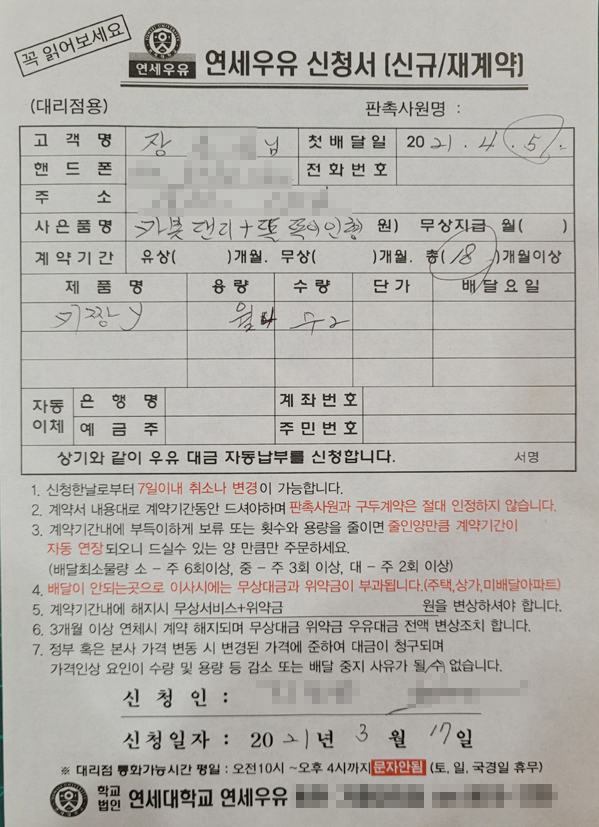 꼭 읽어보세요
연세우유 연세우유 신청서 (신규/재계약)
(대리점용) 판촉사원명 :
고 객 명 장 님 첫 배 달 일 2021. 4. 5.
핸 드 폰 전 화 번 호
주 소
사 은 품 명 원) 무상지급 월( )
계 약 기 간 유상( )개월. 무상( )개월. 총( 18 )개월이상
제 품 명 용 량 수 량 단 가 배 달 요 일
키짱y 월4 수2
자동 은 행 명 계 좌 번 호
이체 예 금 주 주 민 번 호
상기와 같이 우유 대금 자동납부를 신청합니다. 서명
1. 신청한날로부터 7일이내 취소나 변경이 가능합니다.
2. 계약서 내용대로 계약기간동안 드셔야하며 판촉사원과 구두계약은 절대 인정하지 않습니다.
3. 계약기간내에 부득이하게 보류 또는 횟수와 용량을 줄이면 줄인양만큼 계약기간이
자동 연장되오니 드실수 있는 양 만큼만 주문하세요.
(배달최소물량 소 - 주 6회이상, 중 - 주 3회 이상, 대 - 주 2회 이상)
4. 배달이 안되는곳으로 이사시에는 무상대금과 위약금이 부과됩니다.(주택,상가,미배달아파트)
5. 계약기간내에 해지시 무상서비스+위약금 원을 변상하셔야 합니다.
6. 3개월 이상 연체시 계약 해지되며 무상대금 위약금 우유대금 전액 변상조치 합니다.
7. 정부 혹은 본사 가격 변동 시 변경된 가격에 준하여 대금이 청구되며
가격인상 요인이 수량 및 용량 등 감소 또는 배달 중지 사유가 될 수 없습니다.
신 청 인 :
신청일자 : 2021년 3 월 17일
※ 대리점 통화가능시간 평일 : 오전10시 ~오후 4시까지 문자안됨 (토, 일, 국경일 휴무)
학교법인 연세대학교 연세우유